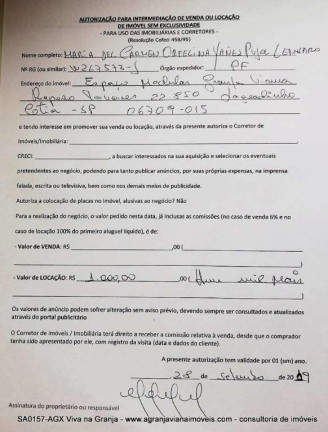 AUTORIZAÇÃO PARA INTERMEDIAÇÃO DE VENDA OU LOCAÇÃO
DE IMÓVEIS SEM EXCLUSIVIDADE
- PARA USO DAS IMOBILIÁRIAS E CORRETORES -
(Resolução Cofeci 458/95)
Nome completo: MARIA DEL CARMEN
Nº RG (ou similar): W267573-J Órgão expedidor: PF
Endereço do imóvel: Espaço Modular Granja Viana
Raposo Tavares 22.850 Lageadinho
Cotia - SP 06709-015
e tendo interesse em promover sua venda ou locação, através da presente autorizo o Corretor de
Imóveis/Imobiliária:
CRECI: , a buscar interessados na sua aquisição e selecionar os eventuais
pretendentes ao negócio, podendo para tanto publicar anúncios, por suas próprias expensas, na imprensa
falada, escrita ou televisiva, bem como nos demais meios de publicidade.
Autoriza a colocação de placas no imóvel, alusivas ao negócio? Não
Para a realização do negócio, o valor pedido nesta data, já inclusas as comissões (no caso de venda 6% e no
caso de locação 100% do primeiro aluguel líquido), é de:
- Valor de VENDA: R$ ,00 (
- Valor de LOCAÇÃO: R$ 1.000,00 ,00 (Hum mil reais
)
Os valores de anúncio podem sofrer alteração sem aviso prévio, devendo sempre ser consultados e atualizados
através do portal publicitário
O Corretor de imóveis / Imobiliária terá direito a receber a comissão relativa à venda, desde que o comprador
tenha sido apresentado por ele, com registro da visita (data e dados do cliente).
A presente autorização tem validade por 01 (um) ano.
28 de setembro de 2019
Assinatura do proprietário ou responsável
SA0157-AGX Viva na Granja - www.agranjavianaimoveis.com - consultoria de imóveis